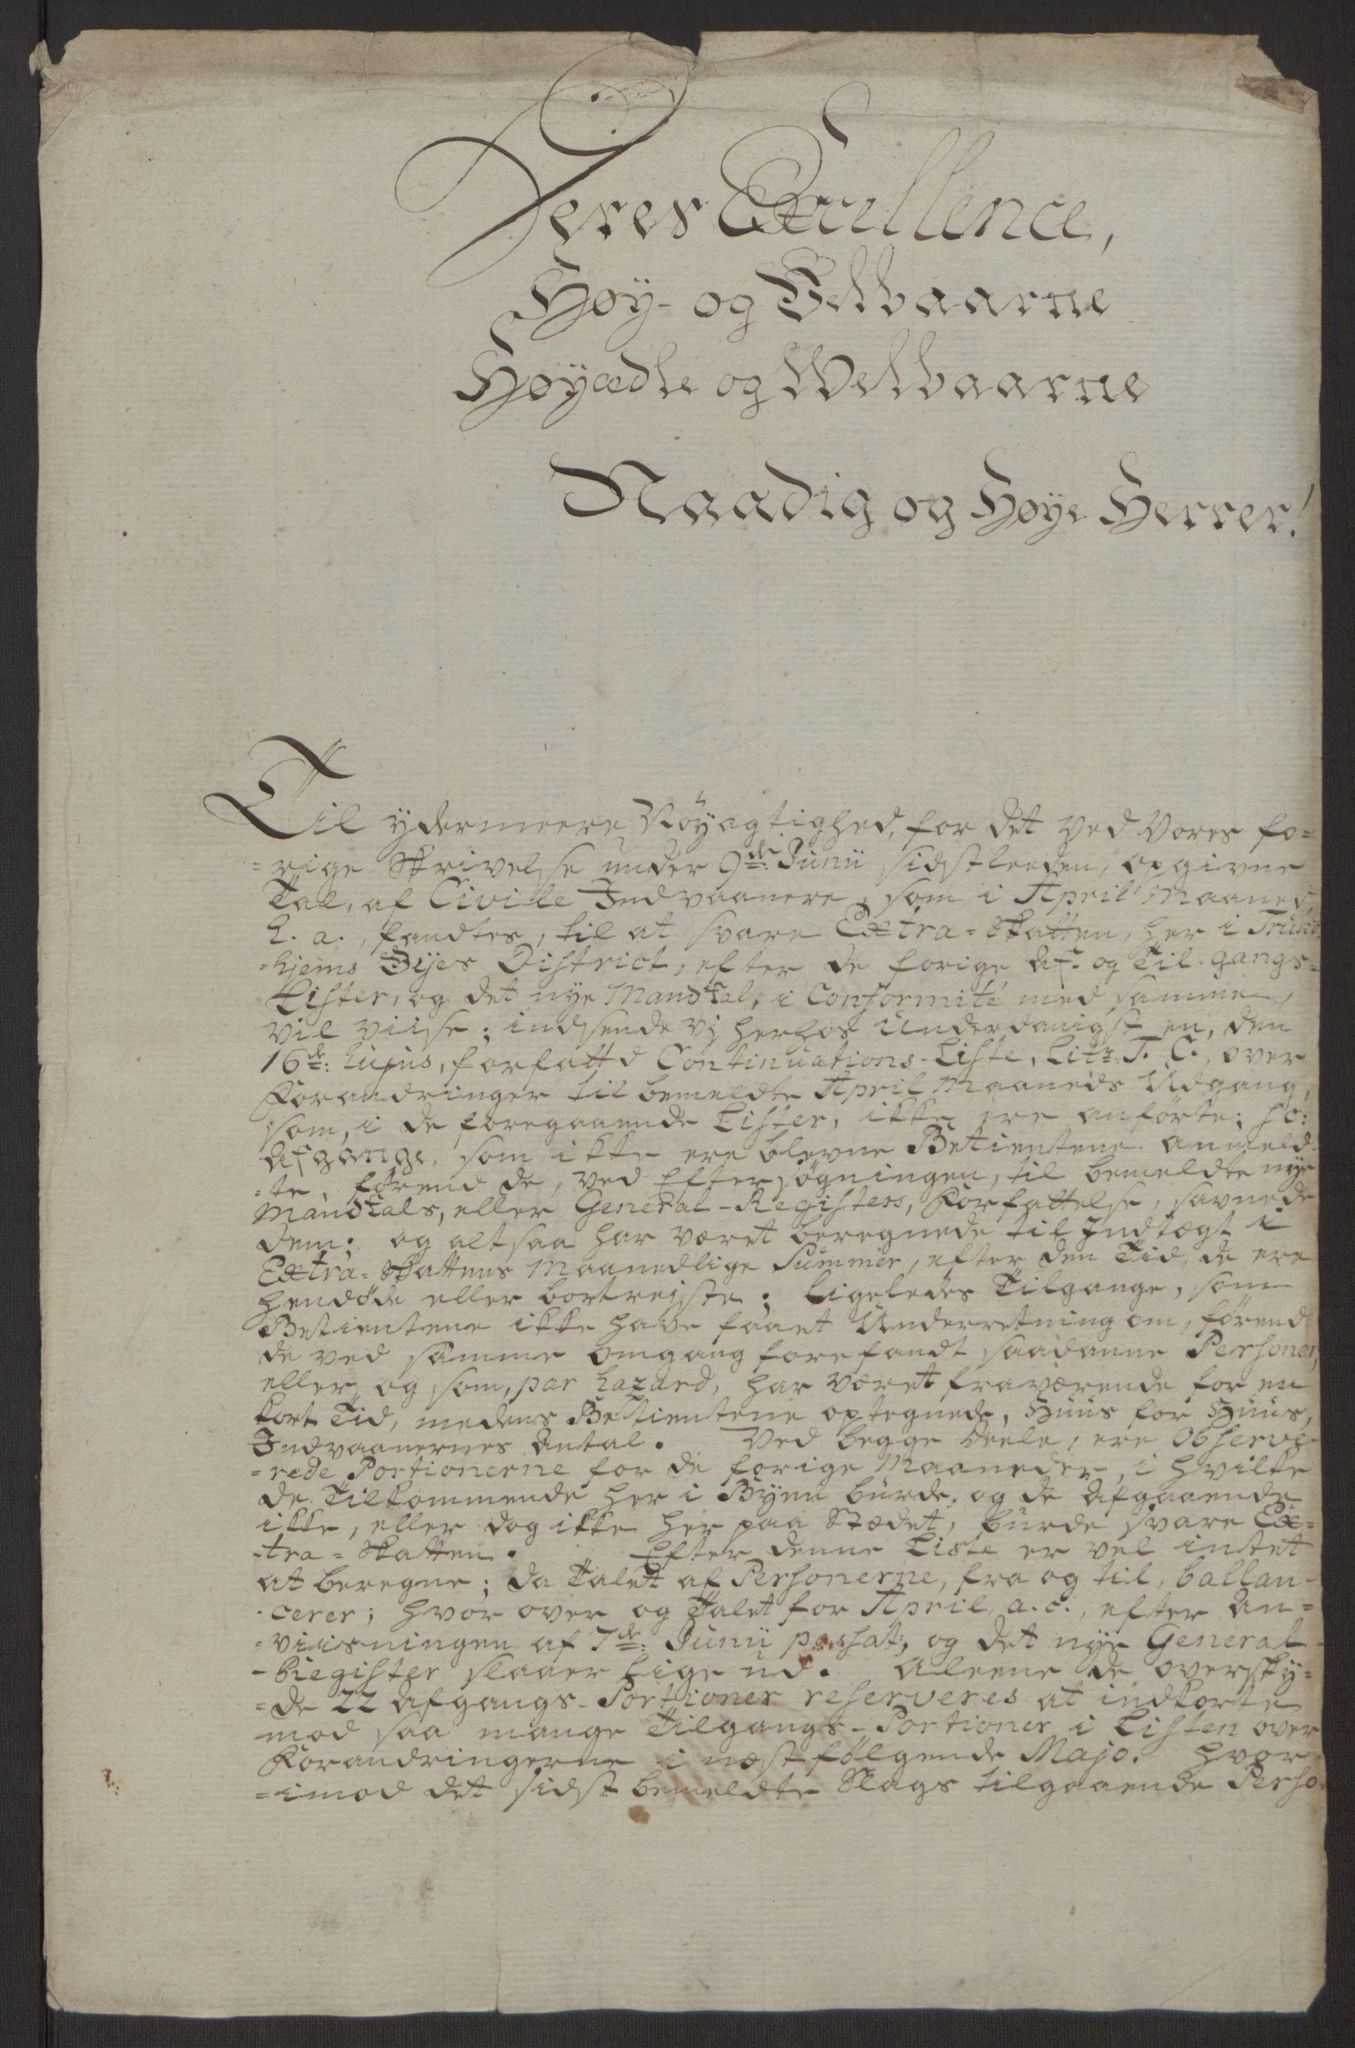 Deres Excellence,
Høy- og Velbaarne
Høyædle og Welbaarne
Naadig og Høye Herrer!
Til ydermeere Nöyagtighed, for det ved Vores fo=
=rige Skrivelse under 9de: Junii sidstleeden, opgivne
Tal, af Civile Indvaanere, som i April Maaned,
h. a., fandtes, til at svare Extra=Skatten, her i Trund
=hjems Byes District; efter de forige Af- og Til-gangs=
Lister, og det nye Mandtal, i Conformité med samme,
vil viise; indsende vj herhos Underdanigst en, den
16de: hujus, forfattd Continuations-Liste, Litr. T. C., over
Forandringer til bemeldte April Maaneds Udgang,
som, i de foregaaende Lister, ikke ere anförte; so:
Afgange, som ikke ere blevne Betientene anmeld
=te, förend de, ved Eftersögningen, til bemeldte nye
Mandtals, eller General-Registers, Forfattelse, savnede
dem; og altsaa har været beregnede til Indtægt i
Extra=Skattens Maanedlige Summer, efter den Tid, de ere
hendöde eller bortreyste; ligeledes Tilgange, som
Betientene ikke have faaet Underretning om, förend
de ved samme omgang forefandt saadanne Personer,
eller og som, par hazard, har været fraværende for en
kort Tid, medens Betientene optegnede, Huus for Huus,
Indvaanernes Antal. Ved begge Deele, ere Observe-
=rede Portionerne for de forige Maaneder, i hvilke
de Tilkommende her i Byen burde, og de Afgaaende
ikke, eller dog ikke her paa Stædet, burde svare Ex=
=tra=Skatten. Efter denne Liste er vel intet
at beregne; da Talet af Personerne, fra og til, ballan-
-cerer; hvor over og Talet for April a. c., efter An=
=viisningen af 7de: Junii passat:, og det nye General-
-Register slaaer lige ud. Aleene de oversky=
=de 22 Afgangs-Portioner reserveres at indkorte
mod saa mange Tilgangs-Portioner i Listen over
Forandringerne i næstfölgende Majo. Hvor=
=imod det sidst bemeldte Slags tilgaaende Perso=